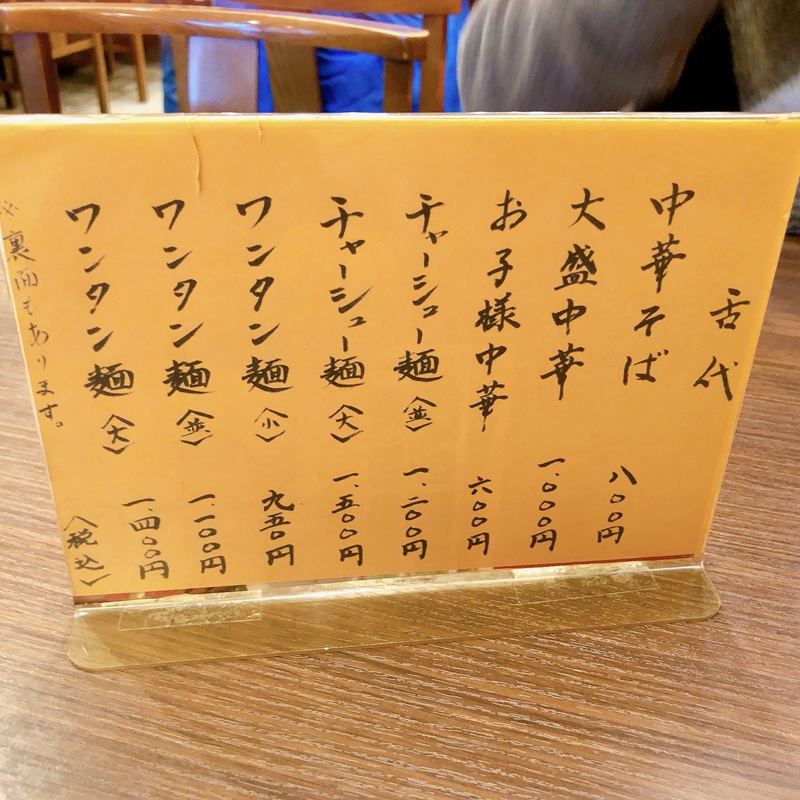 舌代
中華そば 八〇〇円
大盛中華 一、〇〇〇円
お子様中華 六〇〇円
チャーシュー麺〈並〉 一、二〇〇円
チャーシュー麺〈大〉 一、五〇〇円
ワンタン麺〈小〉 九五〇円
ワンタン麺〈並〉 一、一〇〇円
ワンタン麺〈大〉 一、四〇〇円
※裏面もあります。 〈税込〉